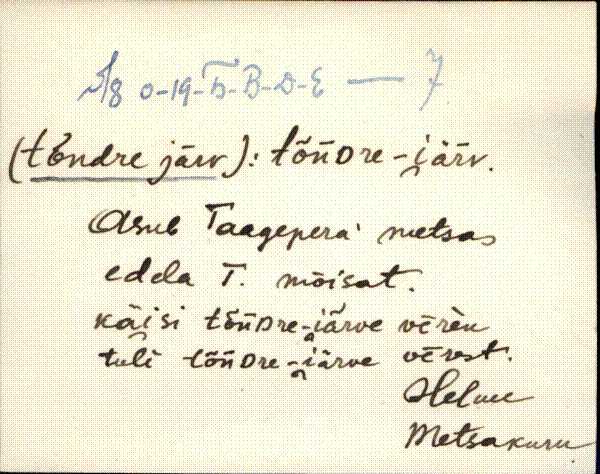 0-19-Б-В-D-E — 7
(tõndre järv): tõn̄Dre-i̯ärv.
Asub Taagepera metsas
edela T. mõisat.
käi̯si tõn̄Dre-i̯ärve vēren
tuli tõn̄Dre-i̯ärve vērest.
Helmi
Metsakuru